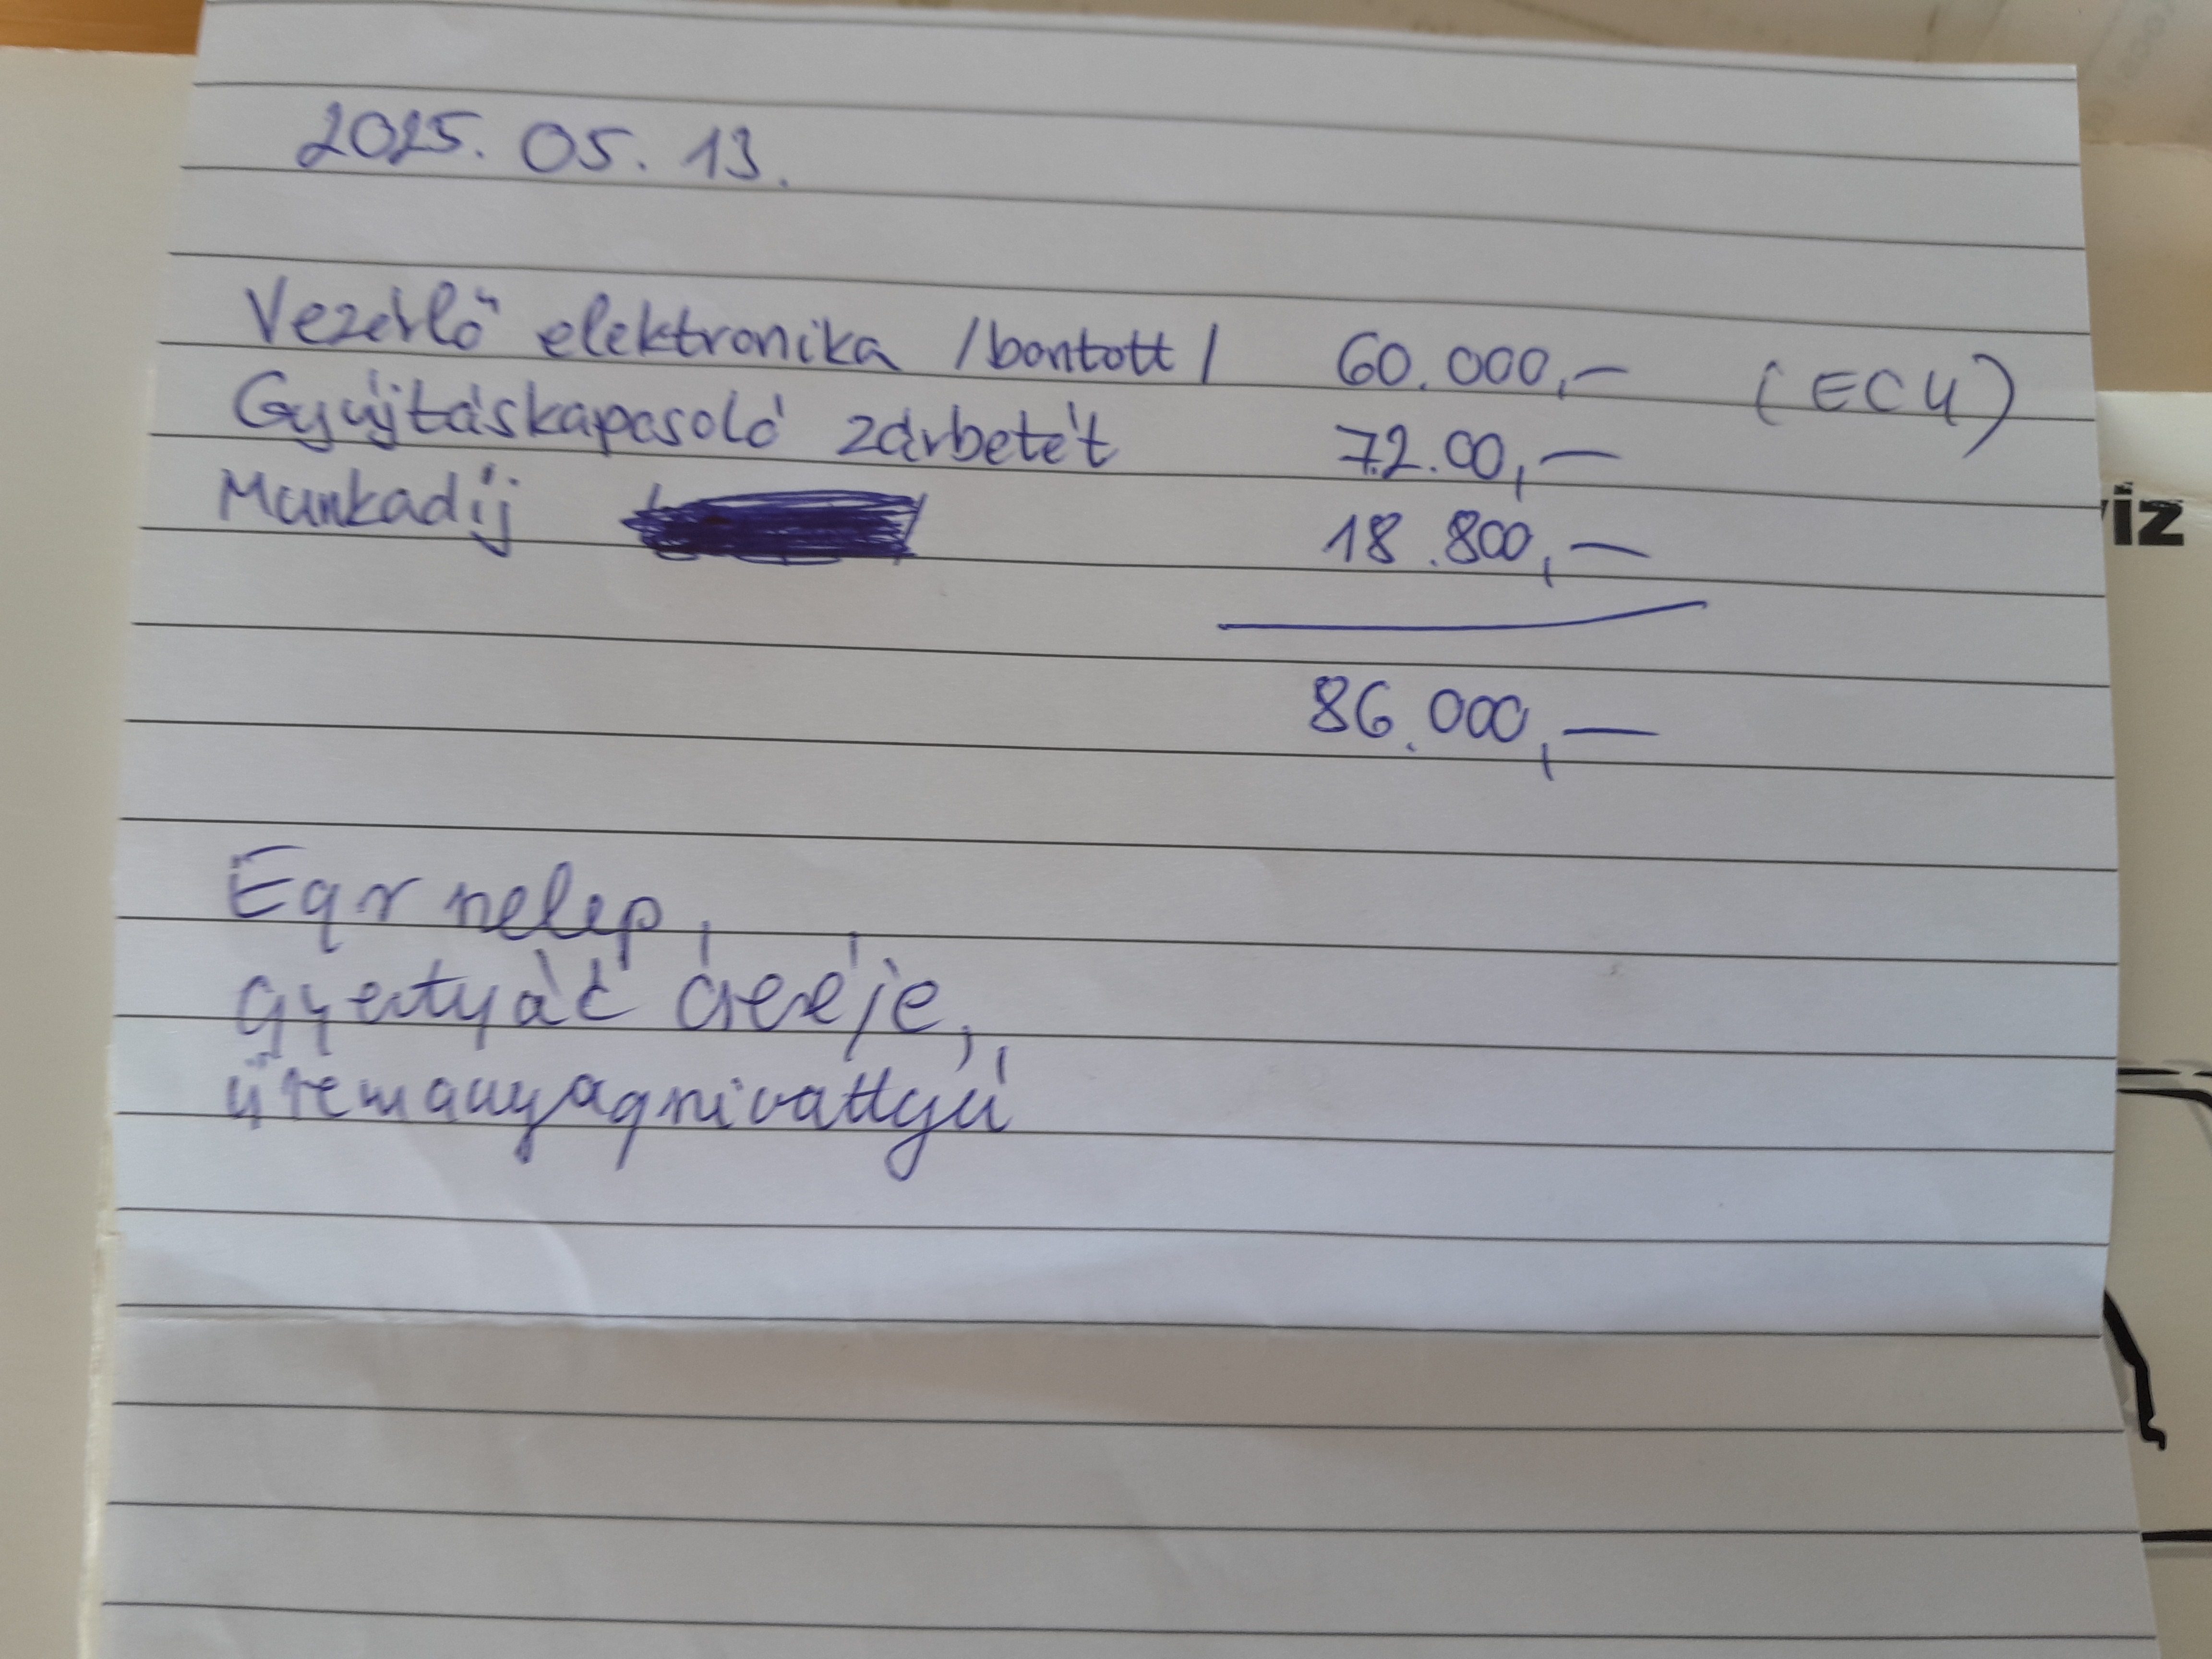 2025. 05. 13.
Vezérlő elektronika /bontott/ 60.000,— (ECU)
Gyújtáskapcsoló zárbetét 72.00,—
Munkadíj 18.800,—
86.000,—
Egr szelep,
gyertyák cseréje,
üzemanyagszivattyú
iz